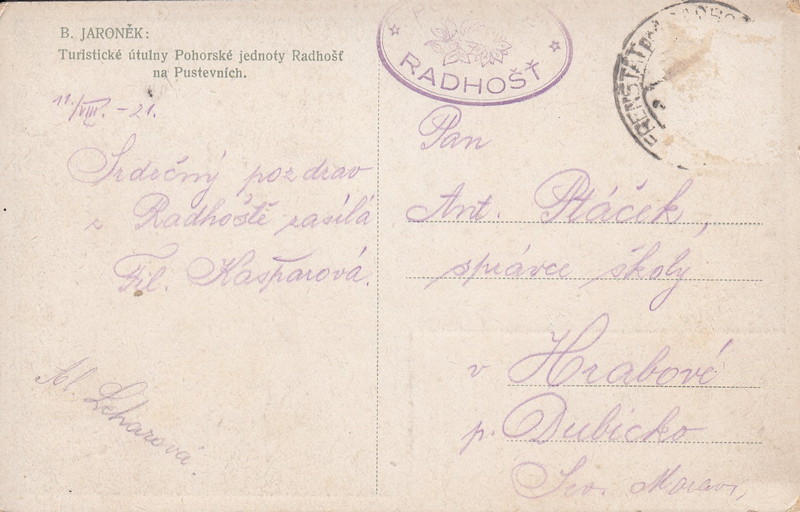 B. JARONĚK:
Turistické útulny Pohorské jednoty Radhošť
na Pustevních.
11./VIII. – 21.
Srdečný pozdrav
z Radhoště zasílá
Fil. Kašparová.
Al. Leharová.
RADHOŠŤ
FRENŠTÁT
Pan
Ant. Ptáček,
správce školy
v Hrabové
p. Dubicko
Sev. Morava,